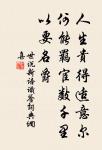 人生貴得適意爾
何能羈宦數千里
以要名爵
世說新語識鑒詞典網
集